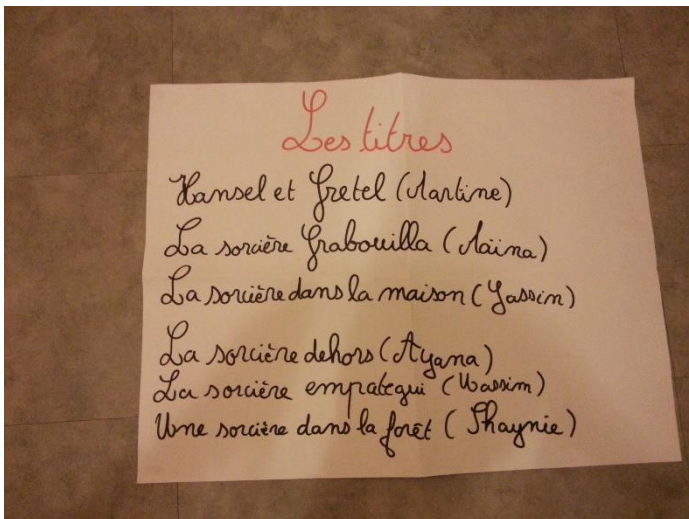 Les titres
Hansel et Gretel (Martine)
La sorcière Grabouilla (Naïna)
La sorcière dans la maison (Yassin)
La sorcière dehors (Ayana)
La sorcière empategui (Wassim)
Une sorcière dans la forêt (Shaynie)